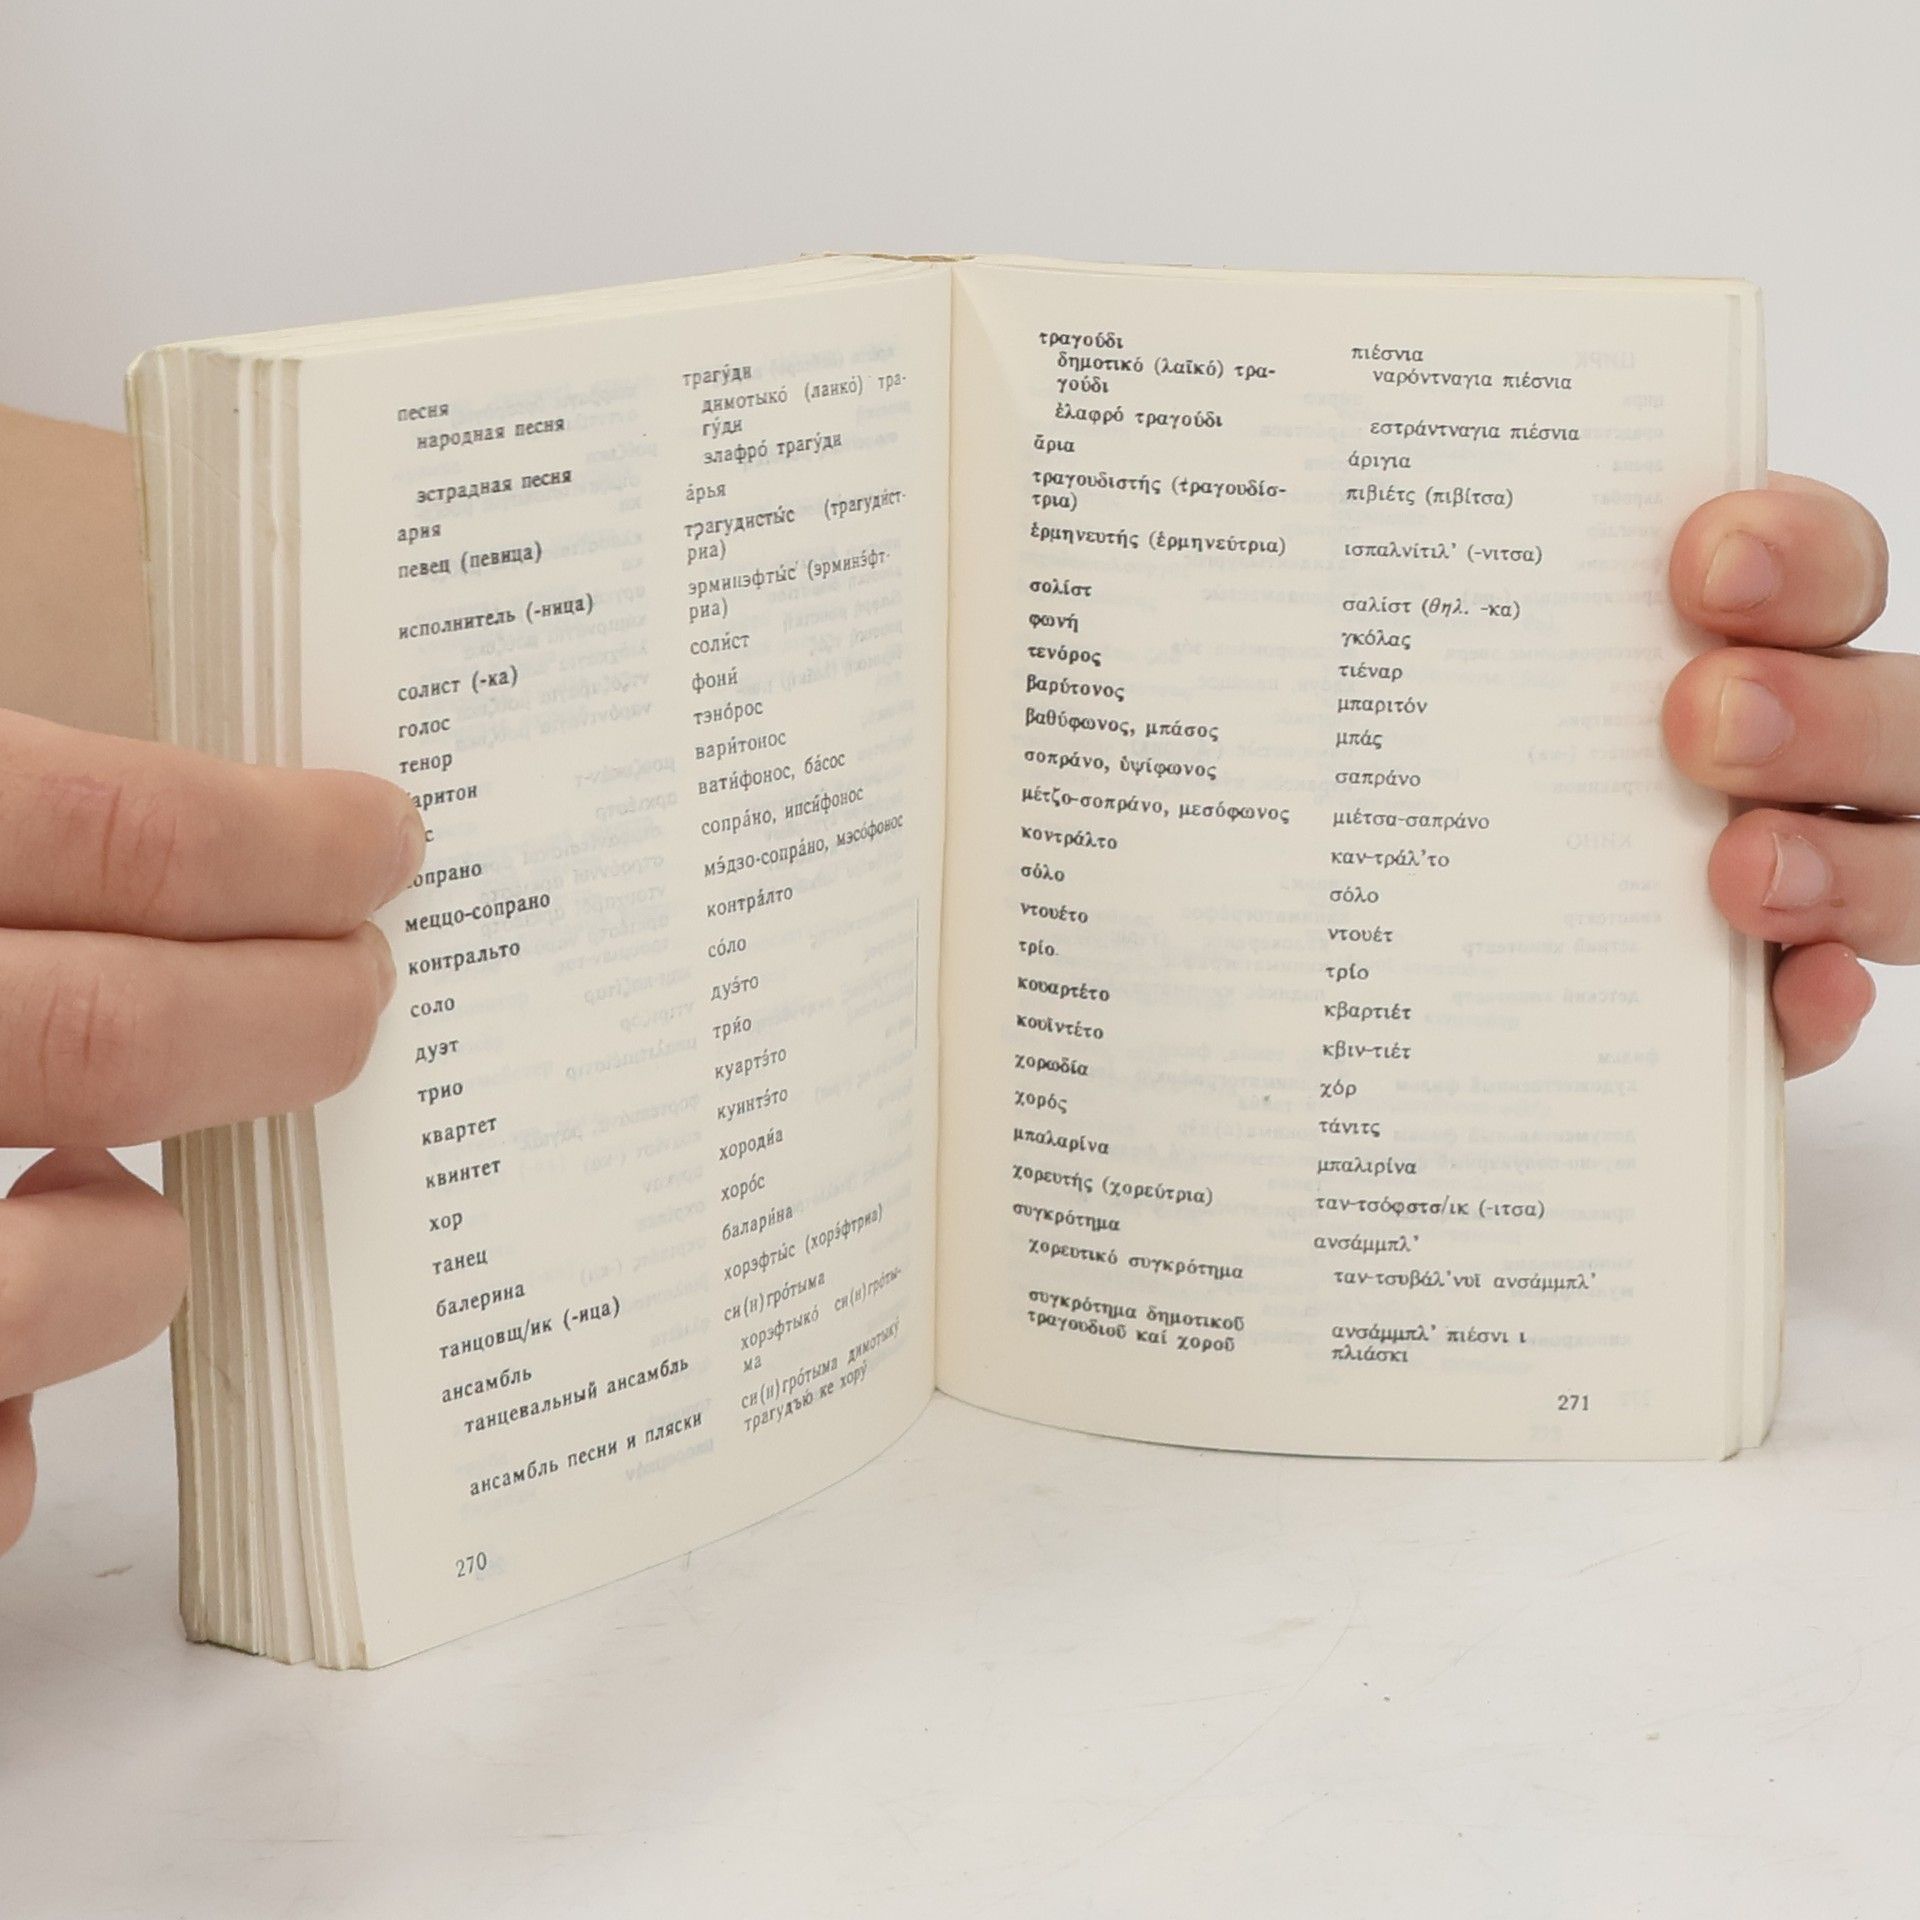 песня
народная песня
эстрадная песня
ария
певец (певица)
исполнитель (-ница)
солист (-ка)
голос
тенор
аритон
с
опрано
меццо-сопрано
контральто
соло
дуэт
трио
квартет
квинтет
хор
танец
балерина
танцовщ/ик (-ица)
ансамбль
танцевальный ансамбль
ансамбль песни и пляски
270
трагу́ди
димотыко́ (лаико́) тра-
гу́ди
элафро́ трагу́ди
а́рья
трагудисты́с (трагуди́ст-
риа)
эрминэфты́с (эрминэ́фт-
риа)
соли́ст
фони́
тэно́рос
вари́тонос
вати́фонос, ба́сос
сопра́но, ипси́фонос
мэ́дзо-сопра́но, мэсо́фонос
контра́лто
со́ло
дуэ́то
три́о
куартэ́то
куинтэ́то
хороди́а
хоро́с
балари́на
хорэфты́с (хорэ́фтриа)
си(н)гро́тыма
хорэфтыко́ си(н)гро́ты-
ма
си(н)гро́тыма димотыку́
трагудъю́ ке хору́
τραγούδι
δημοτικό (λαϊκό) τρα-
γούδι
ἐλαφρό τραγούδι
ἄρια
τραγουδιστής (τραγουδίσ-
τρια)
ἑρμηνευτής (ἑρμηνεύτρια)
σολίστ
φωνή
τενόρος
βαρύτονος
βαθύφωνος, μπάσος
σοπράνο, ὑψίφωνος
μέτζο-σοπράνο, μεσόφωνος
κοντράλτο
σόλο
ντουέτο
τρίο.
κουαρτέτο
κουϊντέτο
χορωδία
χορός
μπαλαρίνα
χορευτής (χορεύτρια)
συγκρότημα
χορευτικό συγκρότημα
συγκρότημα δημοτικοῦ
τραγουδιοῦ καί χοροῦ
πιέσνια
ναρόντναγια πιέσνια
εστράντναγια πιέσνια
άριγια
πιβιέτς (πιβίτσα)
ισπαλνίτιλ' (-νιτσα)
σαλίστ (θηλ. -κα)
γκόλας
τιέναρ
μπαριτόν
μπάς
σαπράνο
μιέτσα-σαπράνο
καν-τράλ'το
σόλο
ντουέτ
τρίο
κβαρτιέτ
κβιν-τιέτ
χόρ
τάνιτς
μπαλιρίνα
ταν-τσόφστσ/ικ (-ιτσα)
ανσάμμπλ'
ταν-τσυβάλ'νυϊ ανσάμμπλ'
ανσάμμπλ' πιέσνι ι
πλιάσκι
271